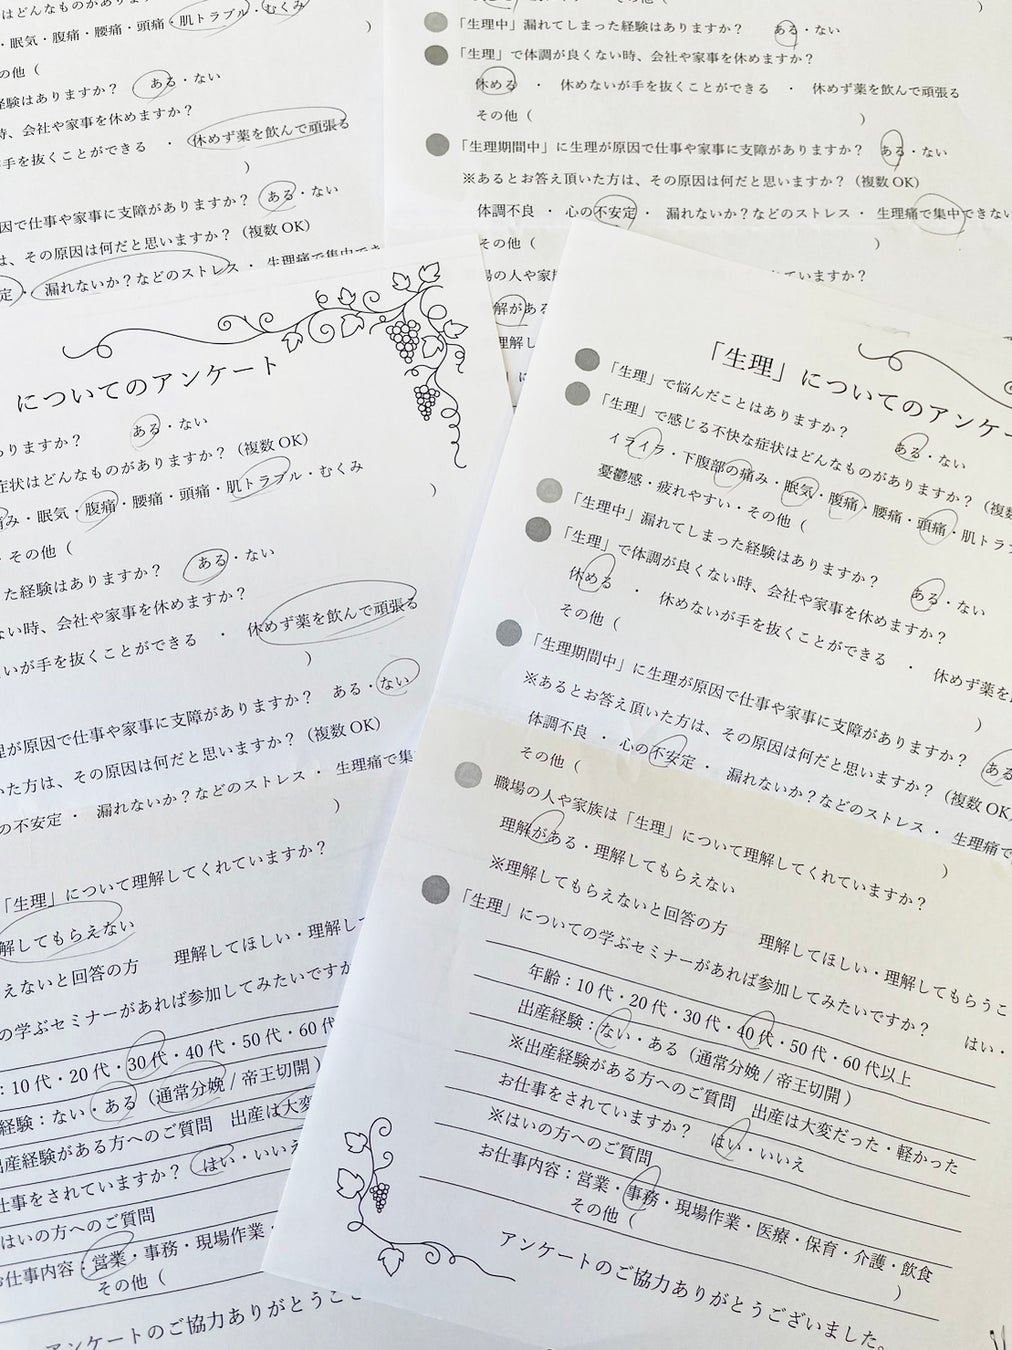 はどんなものがありま
・眠気・腹痛・腰痛・頭痛・肌トラブル・むくみ
の他（　）
経験はありますか？　ある・ない
時、会社や家事を休めますか？
手を抜くことができる　・　休めず薬を飲んで頑張る
）
因で仕事や家事に支障がありますか？　ある・ない
は、その原因は何だと思いますか？（複数OK）
定・漏れないか？などのストレス・生理痛で集中でき
「生理中」漏れてしまった経験はありますか？　ある・ない
「生理」で体調が良くない時、会社や家事を休めますか？
休める　・　休めないが手を抜くことができる　・　休めず薬を飲んで頑張る
その他（　）
「生理期間中」に生理が原因で仕事や家事に支障がありますか？　ある・ない
※あるとお答え頂いた方は、その原因は何だと思いますか？（複数OK）
体調不良　・　心の不安定　・　漏れないか？などのストレス　・　生理痛で集中できない
その他（　）
の人や家族
ていますか？
解がある
理解し
についてのアンケート
ありますか？　ある・ない
症状はどんなものがありますか？（複数OK）
み・眠気・腹痛・腰痛・頭痛・肌トラブル・むくみ
・その他（　）
た経験はありますか？　ある・ない
ない時、会社や家事を休めますか？
いが手を抜くことができる　・　休めず薬を飲んで頑張る
）
理が原因で仕事や家事に支障がありますか？　ある・ない
いた方は、その原因は何だと思いますか？（複数OK）
の不安定・　漏れないか？などのストレス　・　生理痛で集
）
「生理」について理解してくれていますか？
解してもらえない
えないと回答の方　理解してほしい・理解し
の学ぶセミナーがあれば参加してみたいですか
：10代・20代・30代・40代・50代・60代
経験：ない・ある（通常分娩 / 帝王切開）
出産経験がある方へのご質問　出産は大変
仕事をされていますか？　はい・いいえ
はいの方へのご質問
お仕事内容：営業・事務・現場作業・
その他（
アンケートのご協力ありがとうご
「生理」についてのアンケー
「生理」で悩んだことはありますか？　ある・ない
「生理」で感じる不快な症状はどんなものがありますか？（複数
イライラ・下腹部の痛み・眠気・腹痛・腰痛・頭痛・肌トラ
憂鬱感・疲れやすい・その他（
「生理中」漏れてしまった経験はありますか？　ある・ない
「生理」で体調が良くない時、会社や家事を休めますか？
休める　・　休めないが手を抜くことができる　・　休めず薬を
その他（　）
「生理期間中」に生理が原因で仕事や家事に支障がありますか？　ある
※あるとお答え頂いた方は、その原因は何だと思いますか？（複数OK
体調不良　・　心の不安定　・　漏れないか？などのストレス　・　生理痛で
その他（　）
職場の人や家族は「生理」について理解してくれていますか？
理解がある・理解してもらえない
※理解してもらえないと回答の方　理解してほしい・理解してもらうこ
「生理」についての学ぶセミナーがあれば参加してみたいですか？　はい・
年齢：10代・20代・30代・40代・50代・60代以上
出産経験：ない・ある（通常分娩 / 帝王切開）
※出産経験がある方へのご質問　出産は大変だった・軽かった
お仕事をされていますか？　はい・いいえ
※はいの方へのご質問
お仕事内容：営業・事務・現場作業・医療・保育・介護・飲食
その他（　）
アンケートのご協力ありがとうございました。